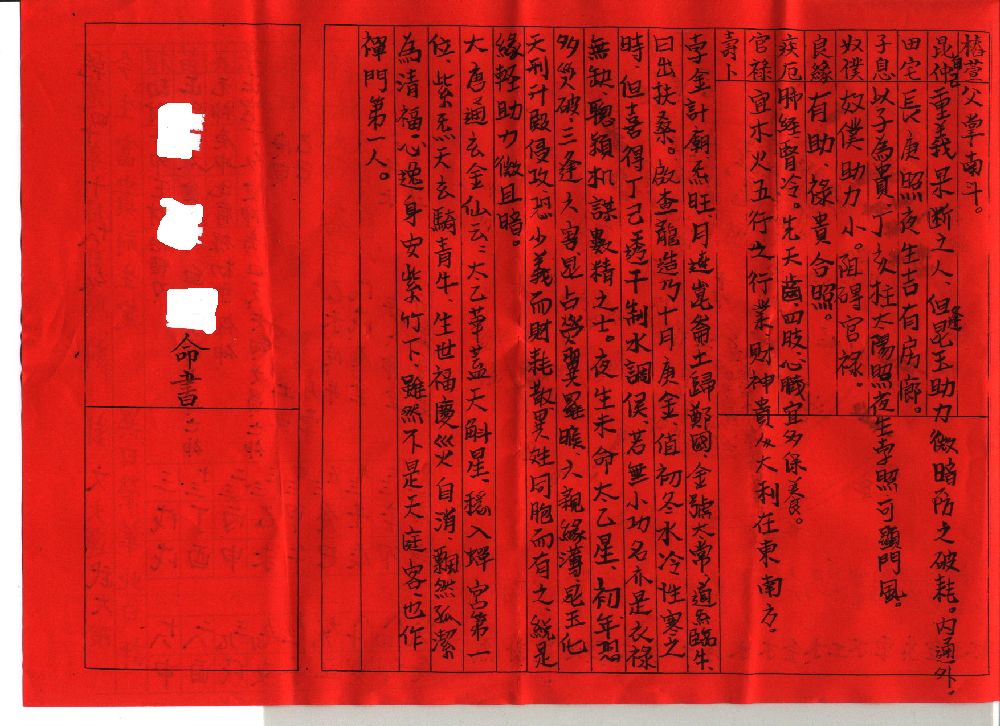 椿萱父掌南斗。
昆仲重義果断之人，但逢昆玉助力微暗防之破耗。内通外。
田宅長庚照夜生吉有房廊。
子息以子為貴，丁女柱太陽照夜生孛照可顯門風。
奴僕奴僕助力小。阻碍官禄。
良緣有助，禄貴合照。
疾厄肺經腎冷。先天齒，四肢，心臟宜多保養。
官禄宜木火五行之行業，財神貴人大利在東南方。
壽卜
孛金計廟炁旺，月遶崑崙土歸鄭國，金號太常道炁臨牛，
曰出扶桑。啟查龍造乃十月庚金，值初冬水冷性寒之
時，但喜得丁己透干制水調侯，若無小功名亦是衣禄
無缺聰穎机謀數精之士。夜生未命太乙星，初年恐
多災破，三逢之害昆占翼羅睺，六親緣薄昆玉化
天刑升殿侵攻，恐少義而財耗散異姓同胞而有之，總是
緣輕助力微且暗。
大唐通玄金仙云：太乙華蓋天斛星，穩入蟬宮第一
位，紫炁天玄騎青牛，生世福慶災自消，飄然孤潔
為清福，心逸身安紫竹下，雖然不是天庭客，也作
禪門第一人。
命書